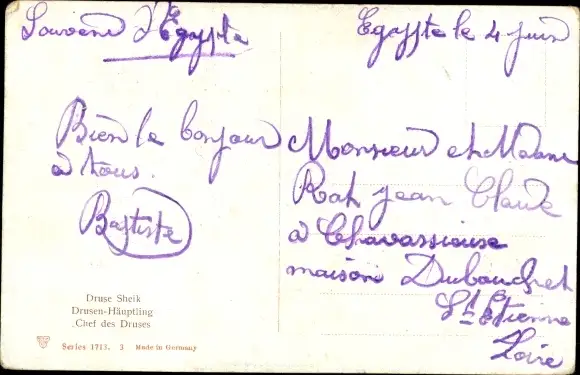 Souvenir d'Egypte
Egypte le 4 juin
Bien le bonjour
à tous.
Baptiste
Monsieur et Madame
Rah jean Claude
à Chavassieuse
maison Dubouchet
St Etienne
Loire
Druse Sheik
Drusen-Häuptling
Chef des Druses
Series 1713. 3 Made in Germany